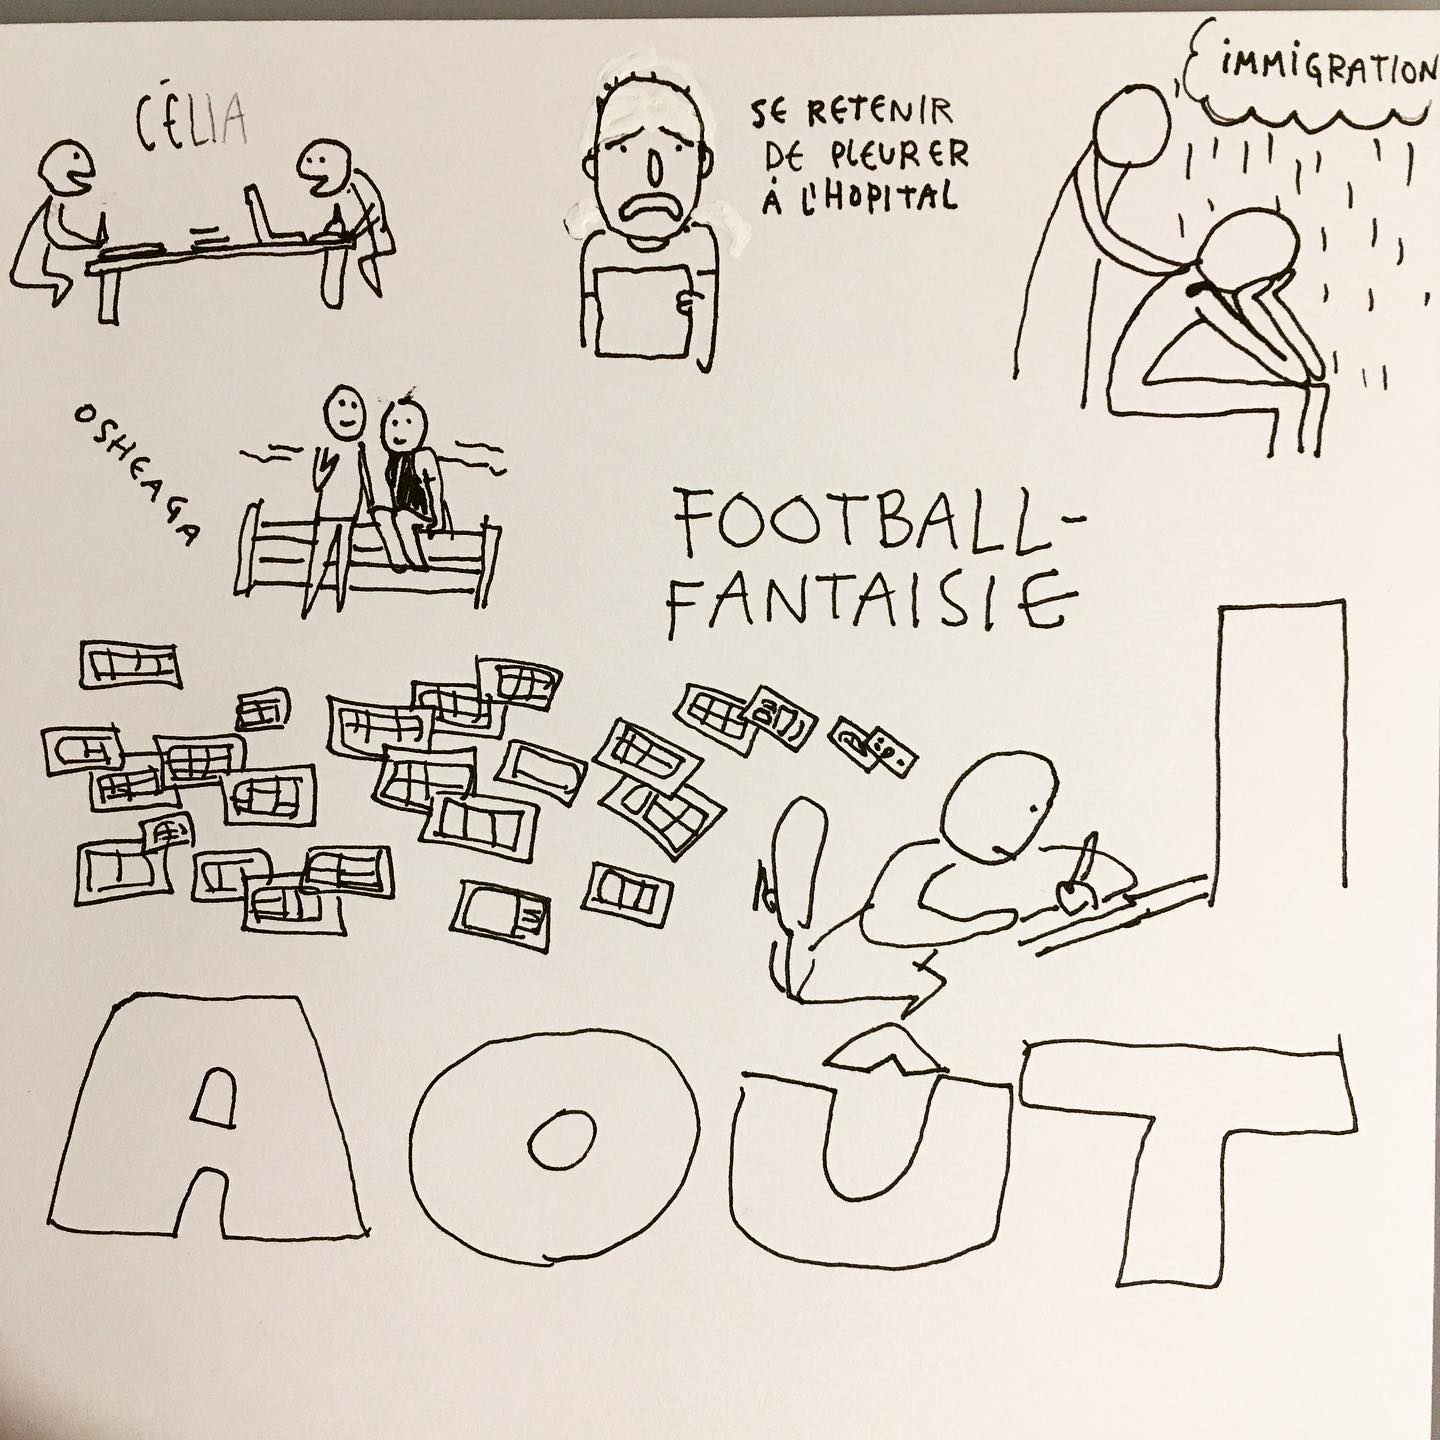 CÉLIA
SE RETENIR
DE PLEURER
À L'HOPITAL
IMMIGRATION
OSHEAGA
FOOTBALL-
FANTAISIE
AOÛT